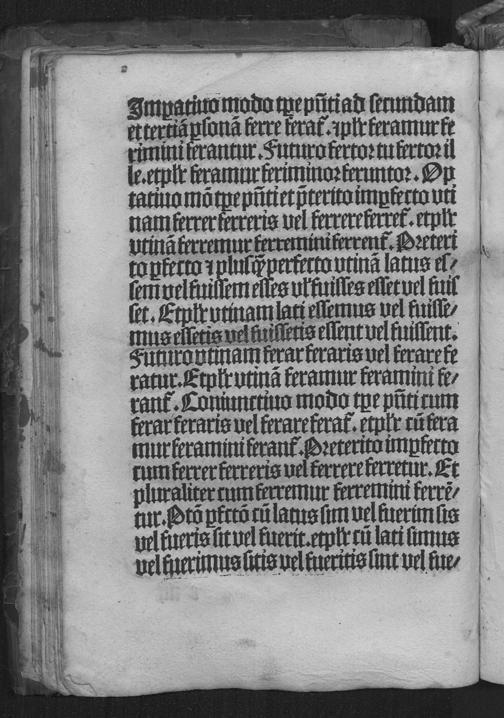 Impatiuo modo tꝑe pn̄ti ad secundam
et tertiā ꝑsonā ferre ferat᷑. ⁊ plr̄ feramur fe
rimini ferantur. Futuro fertor tu fertor il
le. et plr̄ feramur feriminor feruntor. Op
tatiuo mō tꝑe pn̄ti et p̄terito imꝑfecto vti
nam ferrer ferreris vel ferrere ferret᷑. et plr̄
vtinā ferremur ferremini ferrent᷑. Preteri
to ꝑfecto ⁊ plusqꝫ perfecto vtinā latus es/
sem vel fuissem esses vl̄ fuisses esset vel fuis
set. Et plr̄ vtinam lati essemus vel fuisse/
mus essetis vel fuissetis essent vel fuissent.
Futuro vtinam ferar feraris vel ferare fe
ratur. Et plr̄ vtinā feramur feramini fe/
rant᷑. Coniunctiuo modo tꝑe pn̄ti cum
ferar feraris vel ferare ferat᷑. et plr̄ cū fera
mur feramini ferant᷑. Preterito imꝑfecto
cum ferrer ferreris vel ferrere ferretur. Et
pluraliter cum ferremur ferremini ferrē/
tur. Ptō ꝑfctō cū latus sim vel fuerim sis
vel fueris sit vel fuerit. et plr̄ cū lati simus
vel fuerimus sitis vel fueritis sint vel fue/